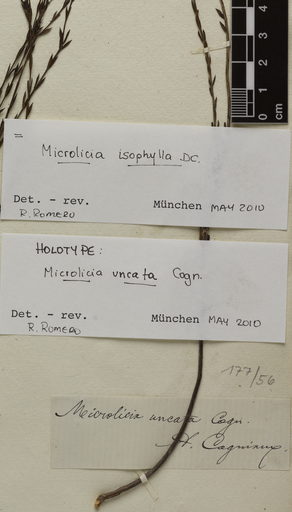 4
3
2
1
0
cm
=
Microlicia isophylla DC.
Det. - rev.
München MAY 2010
R. ROMERO
HOLOTYPE:
Microlicia uncata Cogn.
Det. - rev.
München MAY 2010
R. ROMERO
177/56
Microlicia uncata Cogn.
A. Cogniaux